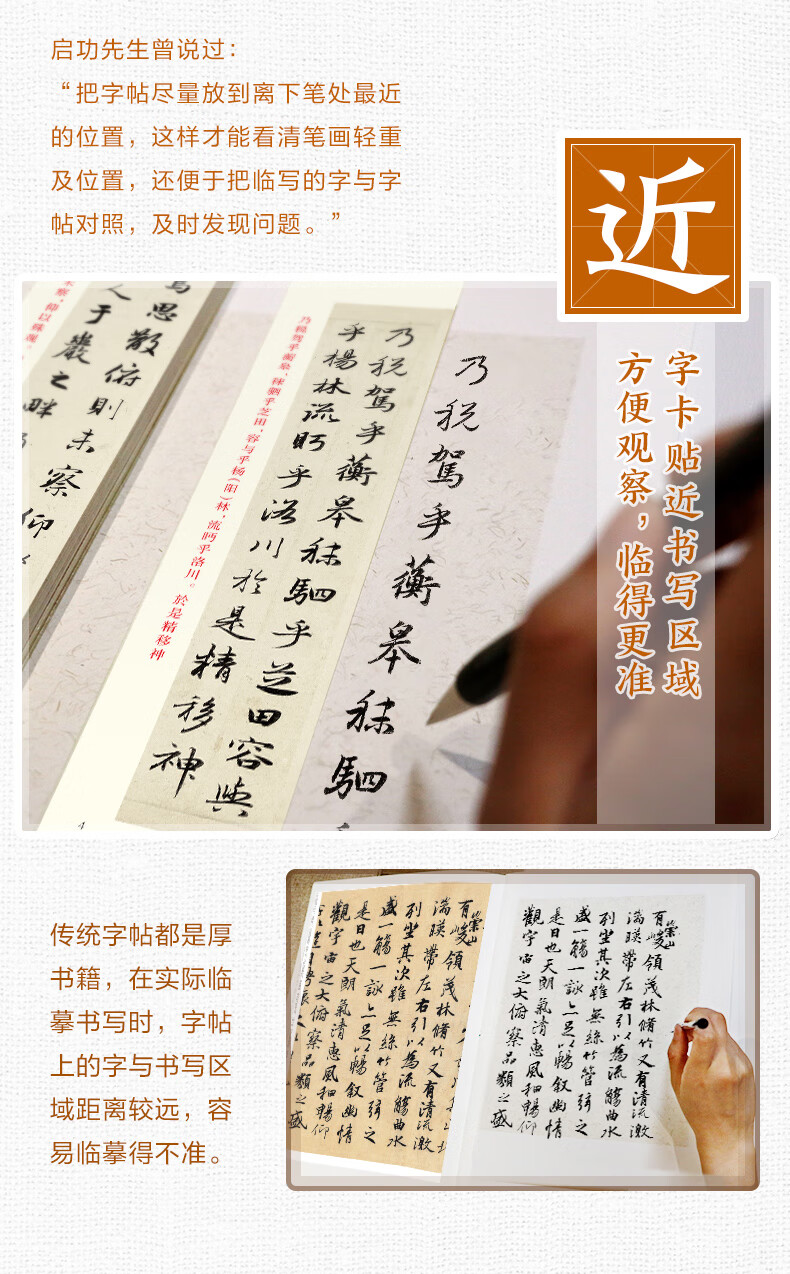 启功先生曾说过：
“把字帖尽量放到离下笔处最近
的位置，这样才能看清笔画轻重
及位置，还便于把临写的字与字
帖对照，及时发现问题。”
近
字卡贴近书写区域
方便观察，临得更准
乃税駕乎蘅皋秣駟
乃税駕乎蘅皋秣駟乎芝田容與
乎楊林流眄乎洛川於是精移神
乃税驾乎蘅皋，秣驷乎芝田，容与乎杨（阳）林，流眄乎洛川。於是精移神
思散俯則未察仰
于巖之畔
察，仰以殊觀。
4
传统字帖都是厚
书籍，在实际临
摹书写时，字帖
上的字与书写区
域距离较远，容
易临摹得不准。
有崇山峻領茂林脩竹又有清流激
湍暎帶左右引以為流觴曲水
列坐其次雖無絲竹管弦之
盛一觴一詠亦足以暢敘幽情
是日也天朗氣清惠風和暢仰
觀宇宙之大俯察品類之盛
有崇山峻領茂林脩竹又有清流激
湍暎帶左右引以為流觴曲水
列坐其次雖無絲竹管弦之
盛一觴一詠亦足以暢敘幽情
是日也天朗氣清惠風和暢仰
觀宇宙之大俯察品類之盛